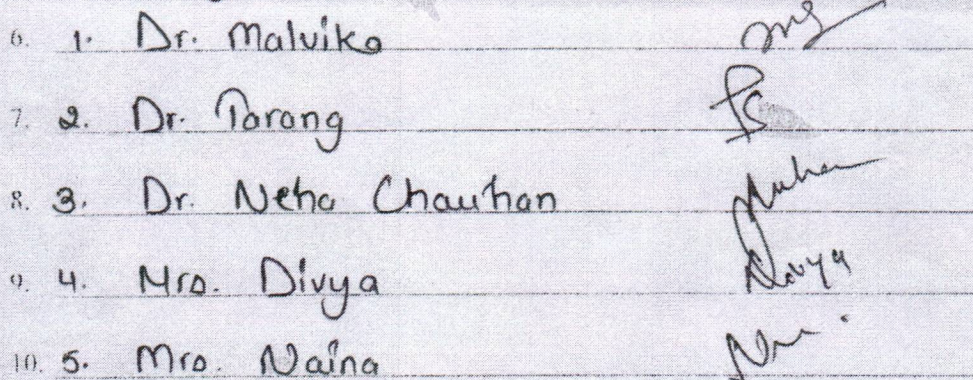 6. 1. Dr. Malvika
7. 2. Dr. Tarang
8. 3. Dr. Neha Chauhan
9. 4. Mrs. Divya Divya
10. 5. Mrs. Naina